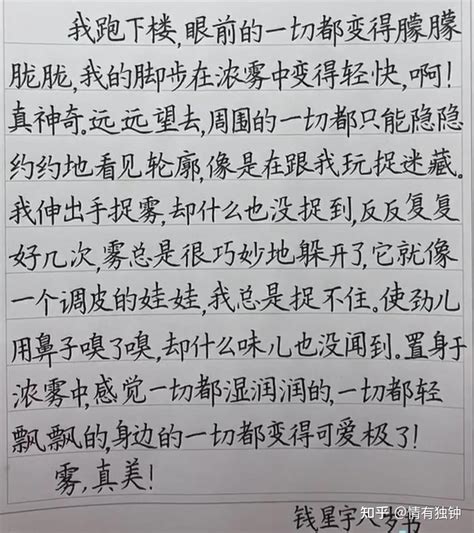 我跑下楼,眼前的一切都变得朦朦
胧胧,我的脚步在浓雾中变得轻快,啊!
真神奇。远远望去,周围的一切都只能隐隐
约约地看见轮廓,像是在跟我玩捉迷藏。
我伸出手捉雾,却什么也没捉到,反反复复
好几次,雾总是很巧妙地躲开了,它就像
一个调皮的娃娃,我总是捉不住。使劲儿
用鼻子嗅了嗅,却什么味儿也没闻到。置身于
浓雾中,感觉一切都湿润润的,一切都轻
飘飘的,身边的一切都变得可爱极了!
雾,真美!
钱星宇八岁书
知乎 @情有独钟